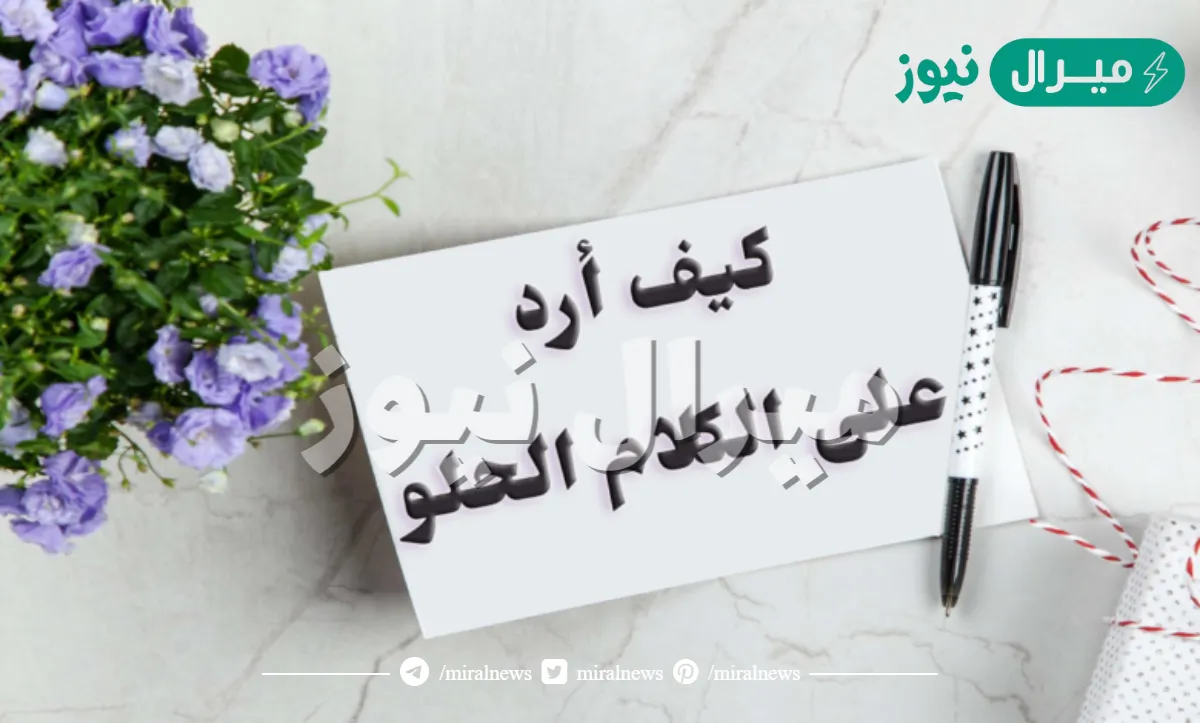 ميرال نيوز
كيف أرد
على الكلام الحلو
ميرال نيوز
/miralnews miralnews /miralnews